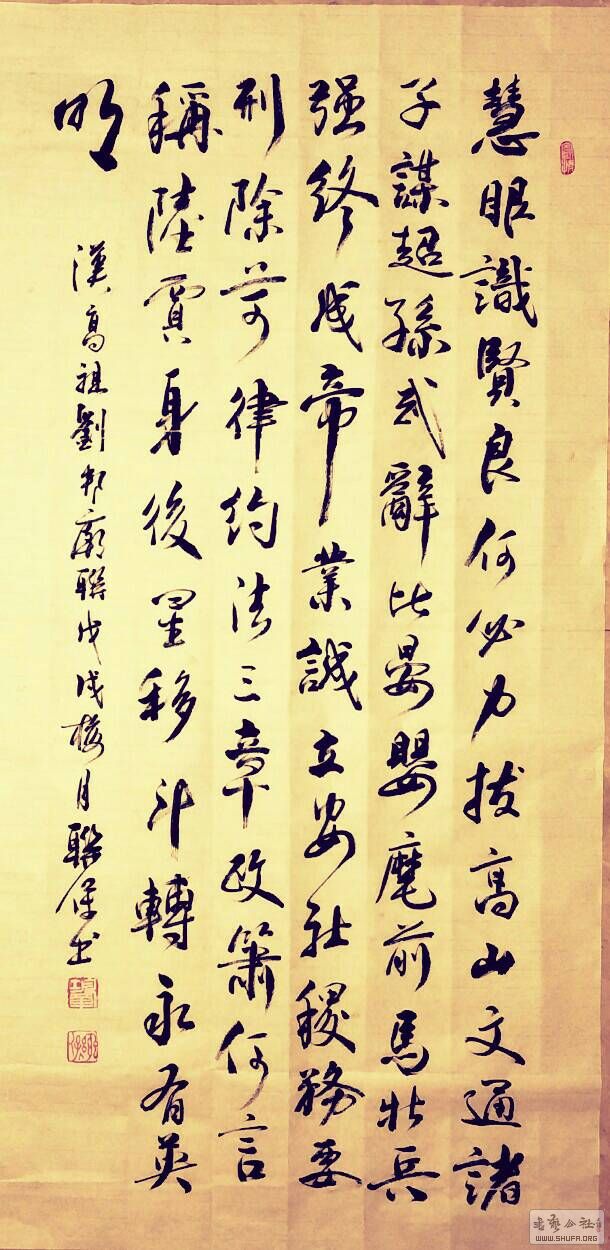 慧眼識賢良何必力拔高山文通諸
子謀超孫武辭比晏嬰麾前馬壯兵
强終成帝業誠立安社稷務要
刑除苛律約法三章政簫何言
稱陸賈身後星移斗轉永有英
明
漢高祖劉邦廟聯戊戌梅月聯保书
WWW.SHUFA.ORG